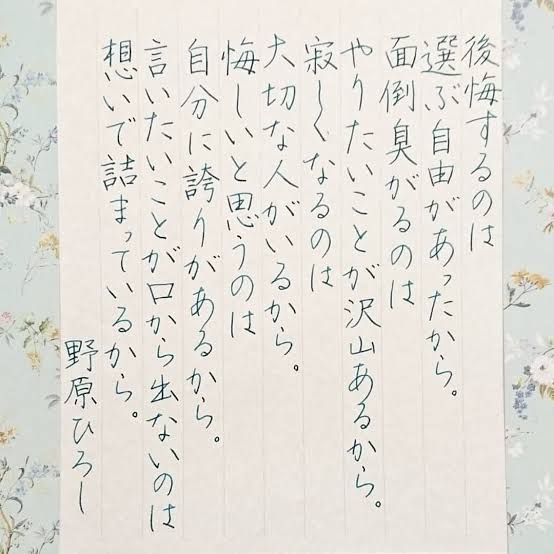 後悔するのは
選ぶ自由があったから。
面倒臭がるのは
やりたいことが沢山あるから。
寂しくなるのは
大切な人がいるから。
悔しいと思うのは
自分に誇りがあるから。
言いたいことが口から出ないのは
想いで詰まっているから。
野原ひろし